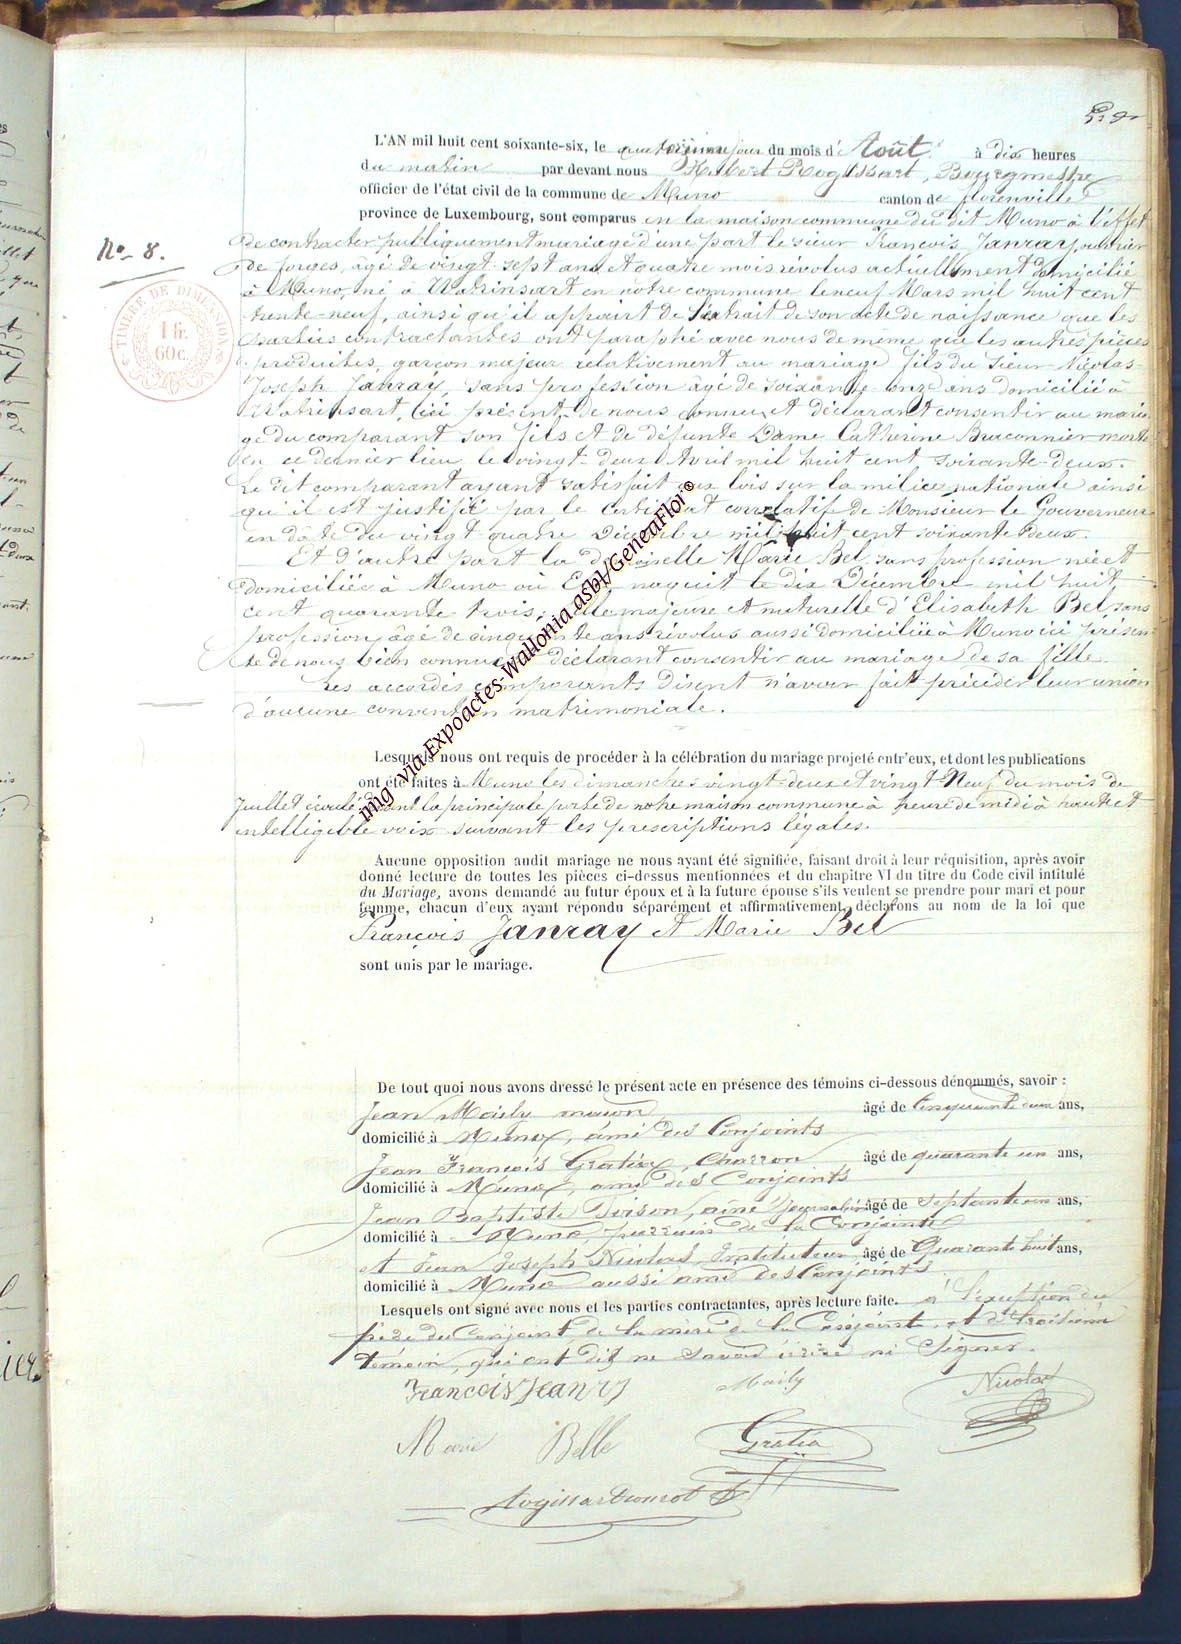 L'AN mil huit cent soixante-six, le quatrième jour du mois d' Août à dix heures
du matin par devant nous Hubert Rogissart, Bourgmestre
officier de l'état civil de la commune de Muno canton de florenville
province de Luxembourg, sont comparus en la maison commune du dit Muno à l'effet
No 8.
de contracter publiquement mariage d'une part le sieur François Janray, ouvrier
de forges, agé de vingt-sept ans et quatre mois révolus actuellement domicilié
à Muno, né à Watrinsart en nôtre commune le neuf Mars mil huit cent
trente-neuf, ainsi qu'il appairt de l'extrait de son acte de naissance que les
TIMBRE DE DIMENSION
1 fr.
60c.
parties contractantes ont paraphé avec nous de même que les autres pièces
produites, garçon majeur relativement au mariage fils du Sieur Nicolas-
Joseph Janray, sans profession agé de soixante-onze ans domicilié à
Watrinsart, ici présent, de nous connu, et déclarant consentir au maria-
ge du comparant son fils et de défunte Dame Catherine Braconnier morte
en ce dernier lieu le vingt-deux Avril mil huit cent soixante-deux.
Le dit comparant ayant satisfait aux lois sur la milice nationale ainsi
qu'il est justifié par le Certificat correlatif de Monsieur le Gouverneur
en date du vingt-quatre Décembre mil huit cent soixante deux.
Et d'autre part la demoiselle Marie Bel sans profession née et
domiciliée à Muno où Elle naquit le dix Décembre mil huit
cent quarante-trois, fille majeure et naturelle d'Elisabeth Bel sans
profession, âgé de cinquante ans révolus aussi domiciliée à Muno ici présen-
te de nous bien connue déclarant consentir au mariage de sa fille.
Les accordés comparants disent n'avoir fait précéder leur union
d'aucune convention matrimoniale.
img via Expoactes-Wallonia asbl/GeneaFlor©
Lesquels nous ont requis de procéder à la célébration du mariage projeté entr'eux, et dont les publications
ont été faites à Muno les dimanches vingt-deux et vingt-Neuf du mois de
Juillet écoulé devant la principale porte de notre maison commune à heure de midi à haute et
intelligible voix suivant les prescriptions légales.
Aucune opposition audit mariage ne nous ayant été signifiée, faisant droit à leur réquisition, après avoir
donné lecture de toutes les pièces ci-dessus mentionnées et du chapitre VI du titre du Code civil intitulé
du Mariage, avons demandé au futur époux et à la future épouse s'ils veulent se prendre pour mari et pour
femme, chacun d'eux ayant répondu séparément et affirmativement, déclarons au nom de la loi que
François Janray et Marie Bel
sont unis par le mariage.
De tout quoi nous avons dressé le présent acte en présence des témoins ci-dessous dénommés, savoir :
Jean Maily maçon, âgé de Cinquante deux ans,
domicilié à Muno, ami des Conjoints
Jean François Gratia, Charron âgé de quarante un ans,
domicilié à Muno, ami des Conjoints
Jean Baptiste ainé journalier âgé de septante ans,
domicilié à Muno, parrain de la Conjointe
et Jean Joseph Nicolas, Instituteur, âgé de Quarante huit ans,
domicilié à Muno aussi ami des Conjoints.
Lesquels ont signé avec nous et les parties contractantes, après lecture faite. à l'exception du
père du Conjoint de la mère de la Conjointe, et du troisième
témoin, qui ont dit ne savoir écrire ni Signer.
François Jeanry Maily Nicolas
Marie Belle Gratia